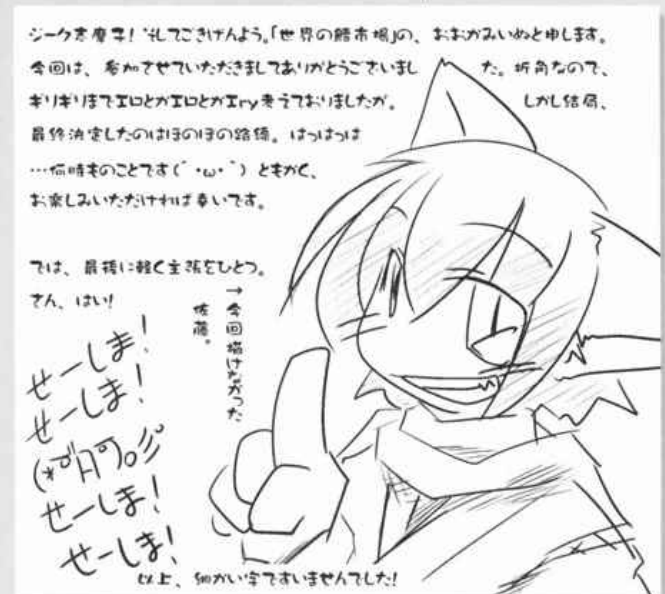 ジーク志摩子！そしてごきげんよう。「世界の鱈市場」の、おおかみいぬと申します。
今回は、参加させていただきましてありがとうございました。折角なので、
ギリギリまでエロとかエロとかエry考えておりましたが。しかし結局、
最終決定したのはほのぼの路線。はっはっは
…何時ものことです（´・ω・｀）ともかく、
お楽しみいただければ幸いです。
では、最後に軽く主張をひとつ。
さん、はい！
→今回描けなかった
佐藤。
せーしま！
せーしま！
せーしま！
せーしま！
以上、細かい字ですいませんでした！